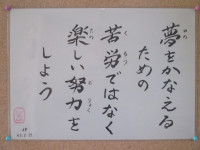 夢をかなえる
ための
苦労ではなく
楽しい努力を
しよう